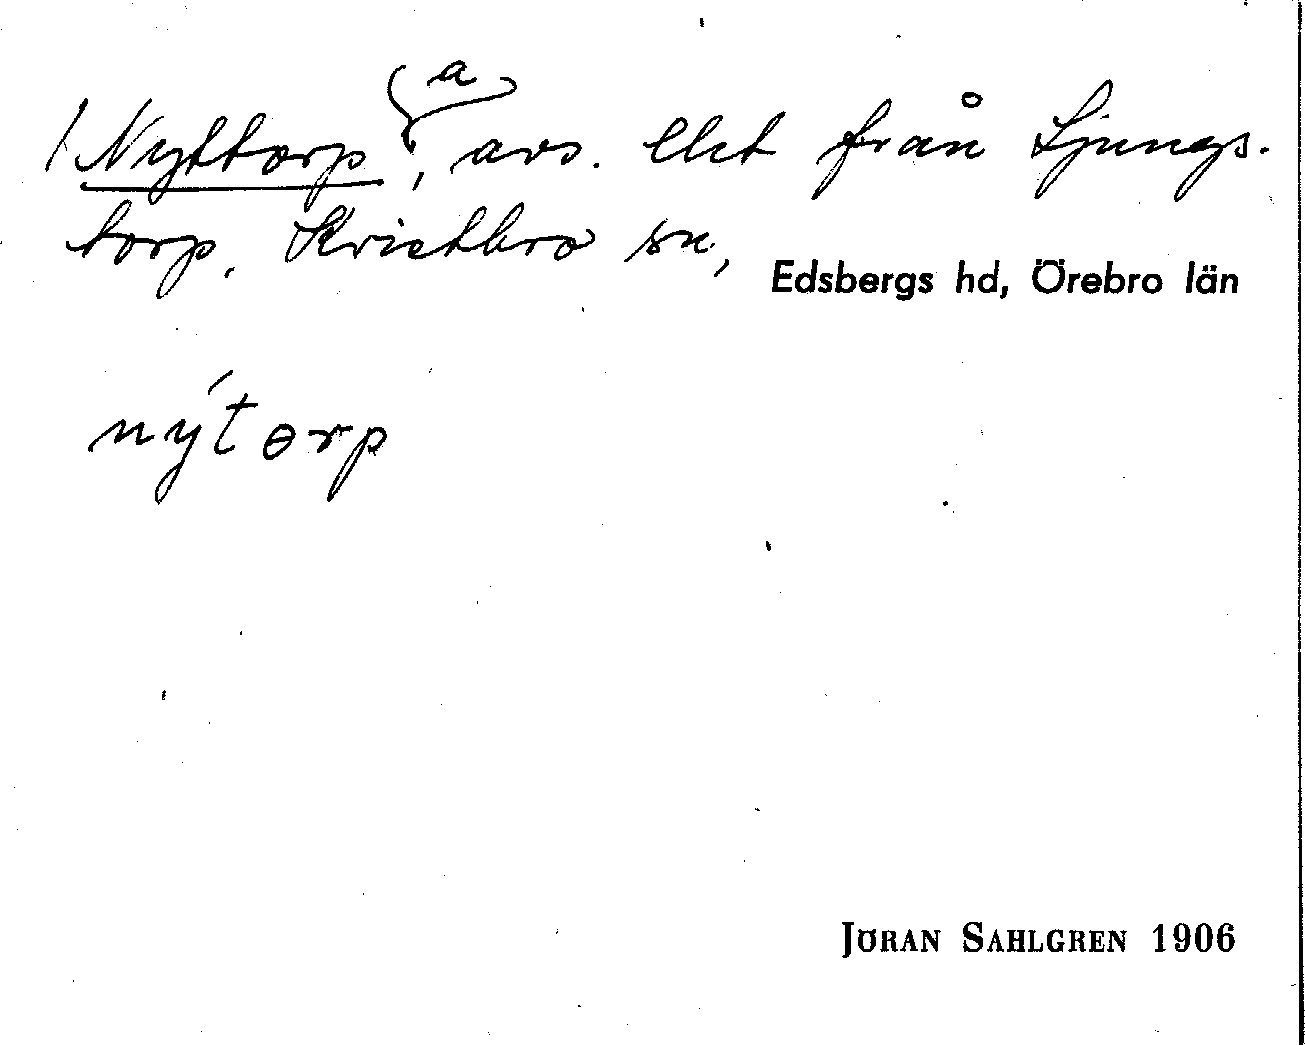 (a)
/ Nyttorp, avs. lht från Ljungs-
torp. Kvistbro sn,
Edsbergs hd, Örebro län
nýtorp
JÖRAN SAHLGREN 1906